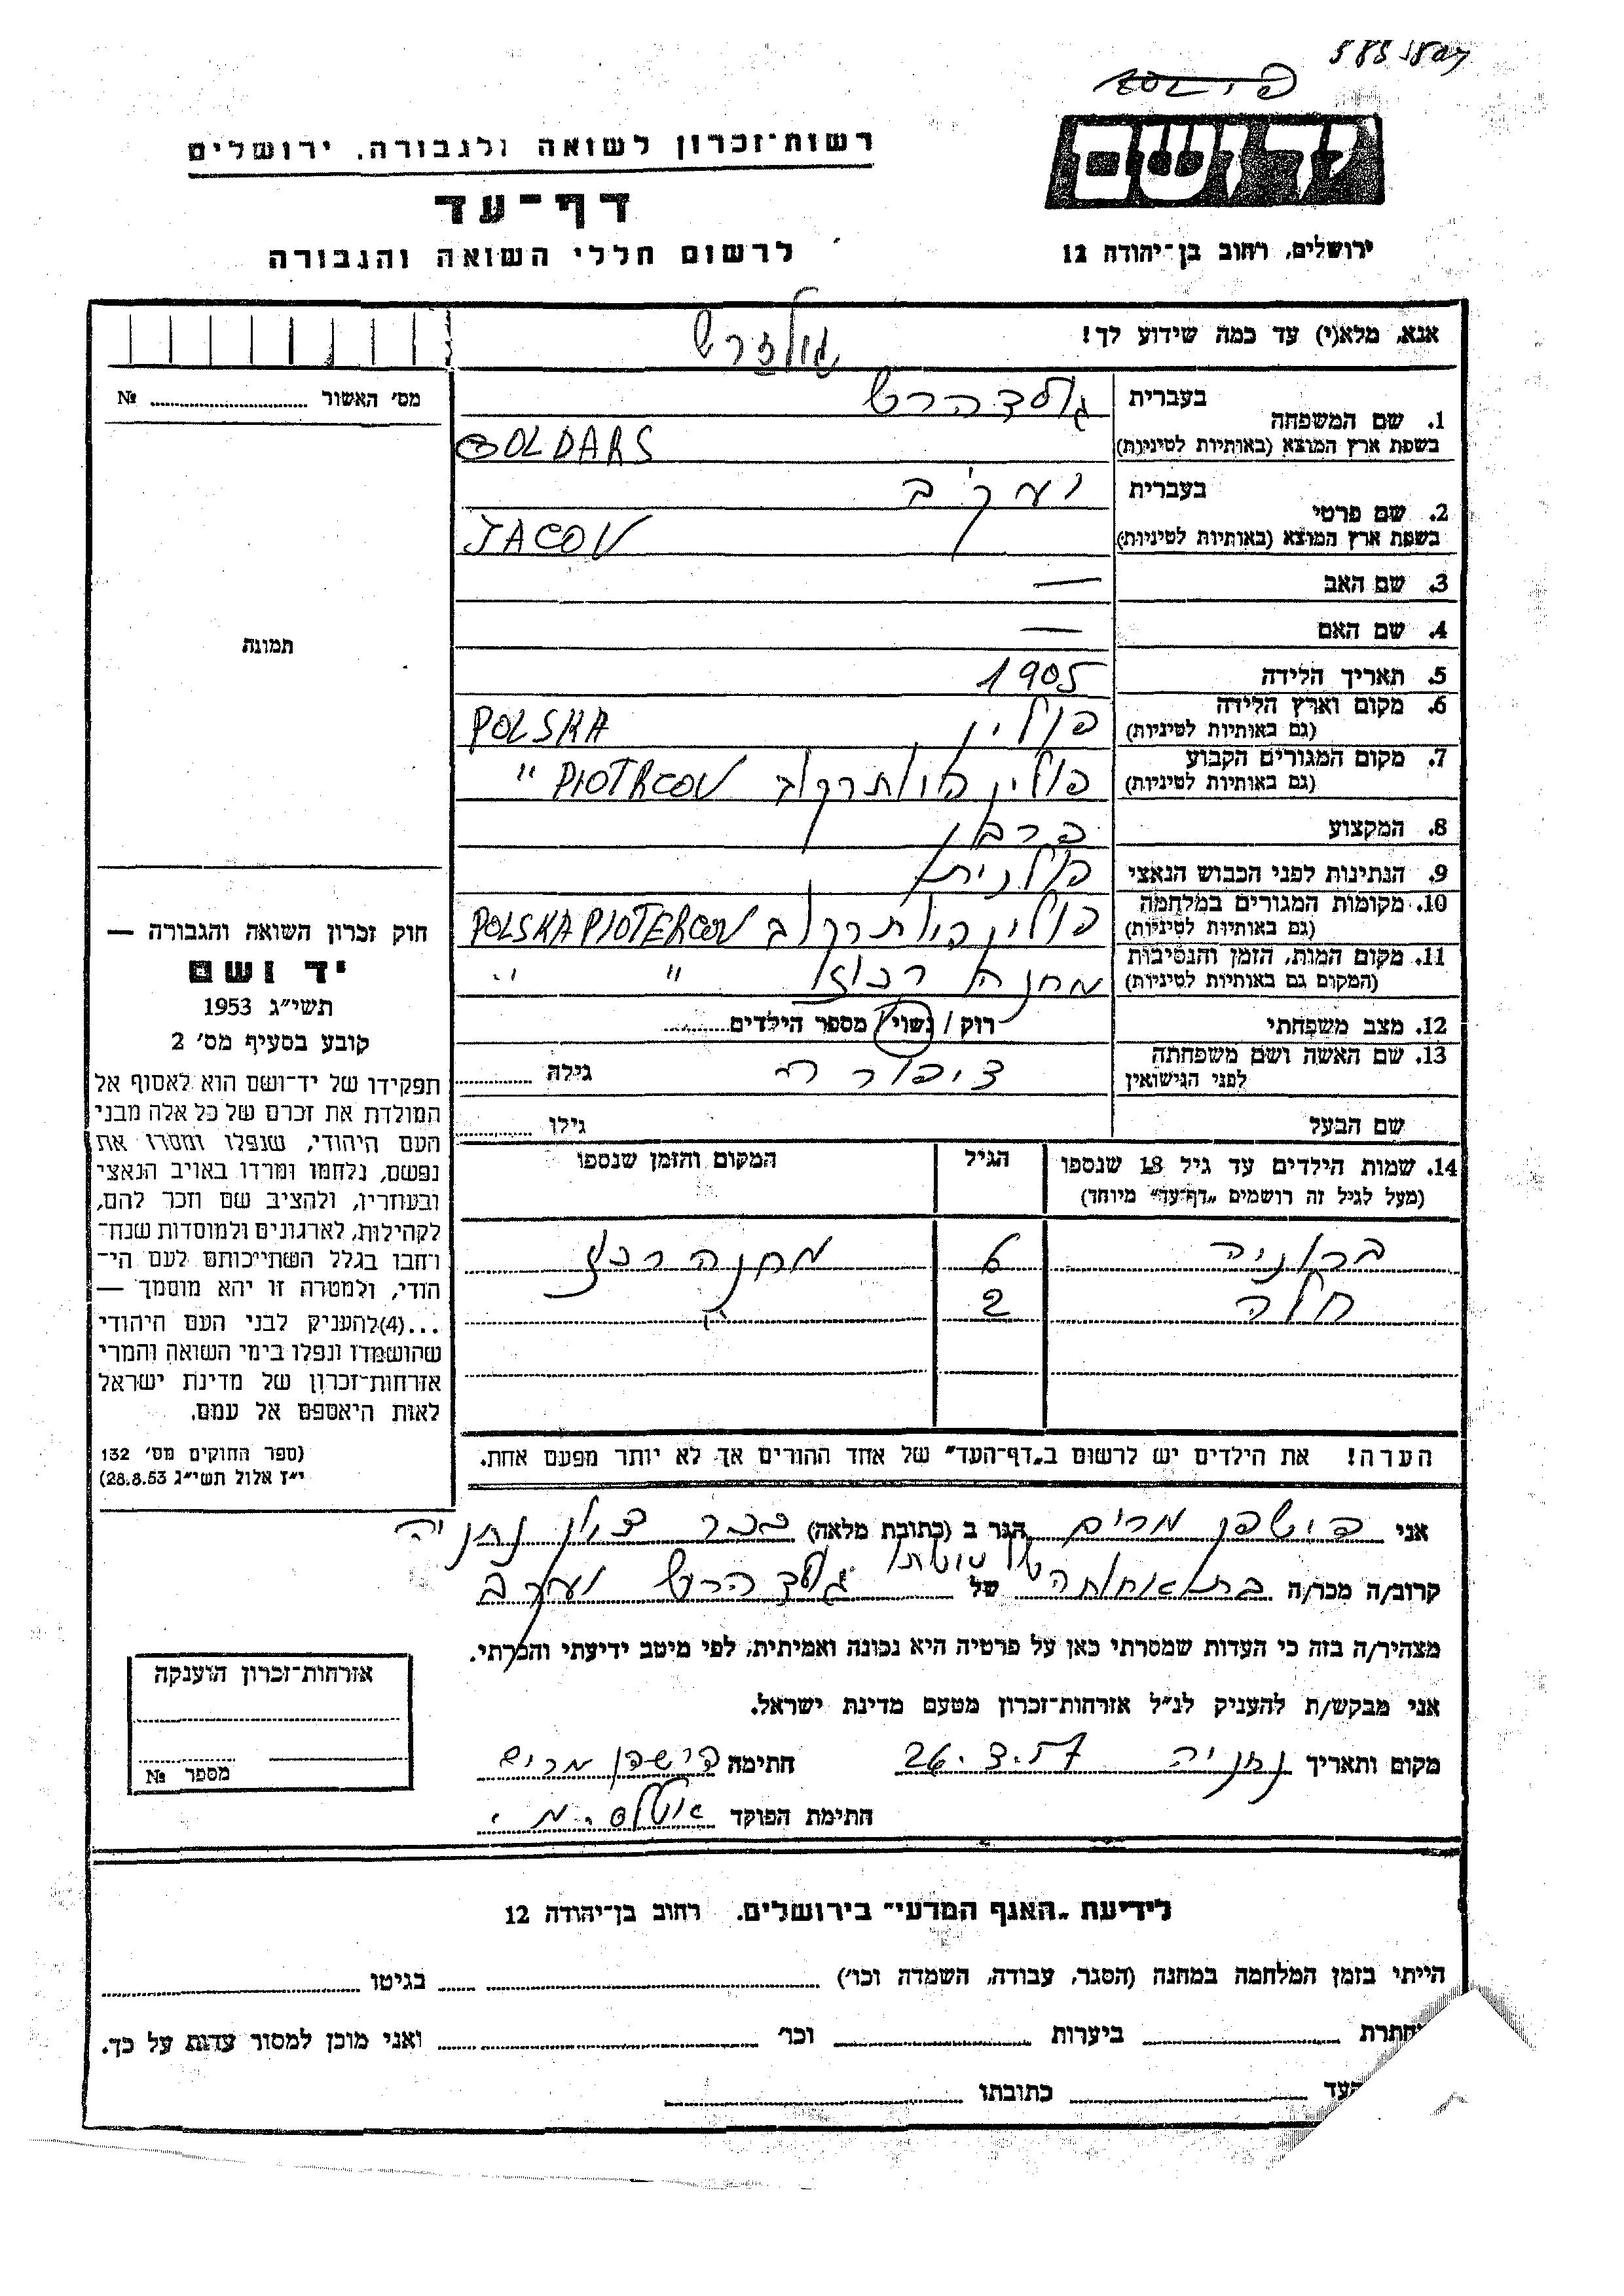 585
רשות־זכרון לשואה ולגבורה, ירושלים
דף־עד
לרשום חללי השואה והגבורה
ירושלים, רחוב בן־יהודה 12
אנא, מלא(י) עד כמה שידוע לך!
מס׳ האשור № 
תמונה
1. שם המשפחה בעברית גולדהרש
בשפת ארץ המוצא (באותיות לטיניות) GOLDARS
2. שם פרטי בעברית יעקב
בשפת ארץ המוצא (באותיות לטיניות) JACOV
3. שם האב —
4. שם האם —
5. תאריך הלידה 1905
6. מקום וארץ הלידה פולין POLSKA
(גם באותיות לטיניות)
7. מקום המגורים הקבוע פולין פיותרקוב PIOTRCOV "
(גם באותיות לטיניות)
8. המקצוע
9. הנתינות לפני הכבוש הנאצי פולנית
10. מקומות המגורים במלחמה פולין פיותרקוב POLSKA PIOTERCOV
(גם באותיות לטיניות)
11. מקום המות, הזמן והנסיבות מחנה רכוז " "
(המקום גם באותיות לטיניות)
12. מצב משפחתי רוק / נשוי / מספר הילדים
13. שם האשה ושם משפחתה ציפורה גילה
לפני הנישואין
שם הבעל גילו
14. שמות הילדים עד גיל 18 שנספו הגיל המקום והזמן שנספו
(מעל לגיל זה רושמים „דף־עד״ מיוחד)
ברוניה 6 מחנה רכוז
חלה 2 "
הערה! את הילדים יש לרשום ב„דף־העד״ של אחד ההורים אך לא יותר מפעם אחת.
חוק זכרון השואה והגבורה —
יד ושם
תשי״ג 1953
קובע בסעיף מס׳ 2
תפקידו של יד־ושם הוא לאסוף אל
המולדת את זכרם של כל אלה מבני
העם היהודי, שנפלו ומסרו את
נפשם, נלחמו ומרדו באויב הנאצי
ובעוזריו, ולהציב שם וזכר להם,
לקהילות, לארגונים ולמוסדות שנח־
רחבו בגלל השתייכותם לעם הי־
הודי, ולמטרה זו יהא מוסמך —
...(4)להעניק לבני העם היהודי
שהושמדו ונפלו בימי השואה והמרי
אזרחות־זכרון של מדינת ישראל
לאות היאספם אל עמם.
(ספר החוקים מס׳ 132
י״ז אלול תשי״ג 28.8.53)
אני מרים הגר ב (כתובת מלאה) ככר ציון נתניה
קרוב/ה מכר/ה של גולדהרש יעקב
מצהיר/ה בזה כי העדות שמסרתי כאן על פרטיה היא נכונה ואמיתית, לפי מיטב ידיעתי והכרתי.
אני מבקש/ת להעניק לנ״ל אזרחות־זכרון מטעם מדינת ישראל.
מקום ותאריך נתניה 26.3.57 חתימה מרים
חתימת הפוקד
אזרחות־זכרון הוענקה
מספר №
לידיעת „האגף המדעי״ בירושלים. רחוב בן־יהודה 12
הייתי בזמן המלחמה במחנה (הסגר, עבודה, השמדה וכו׳) בגיטו
חתרת ביערות וכו׳ ואני מוכן למסור עדות על כך.
העד כתובתו